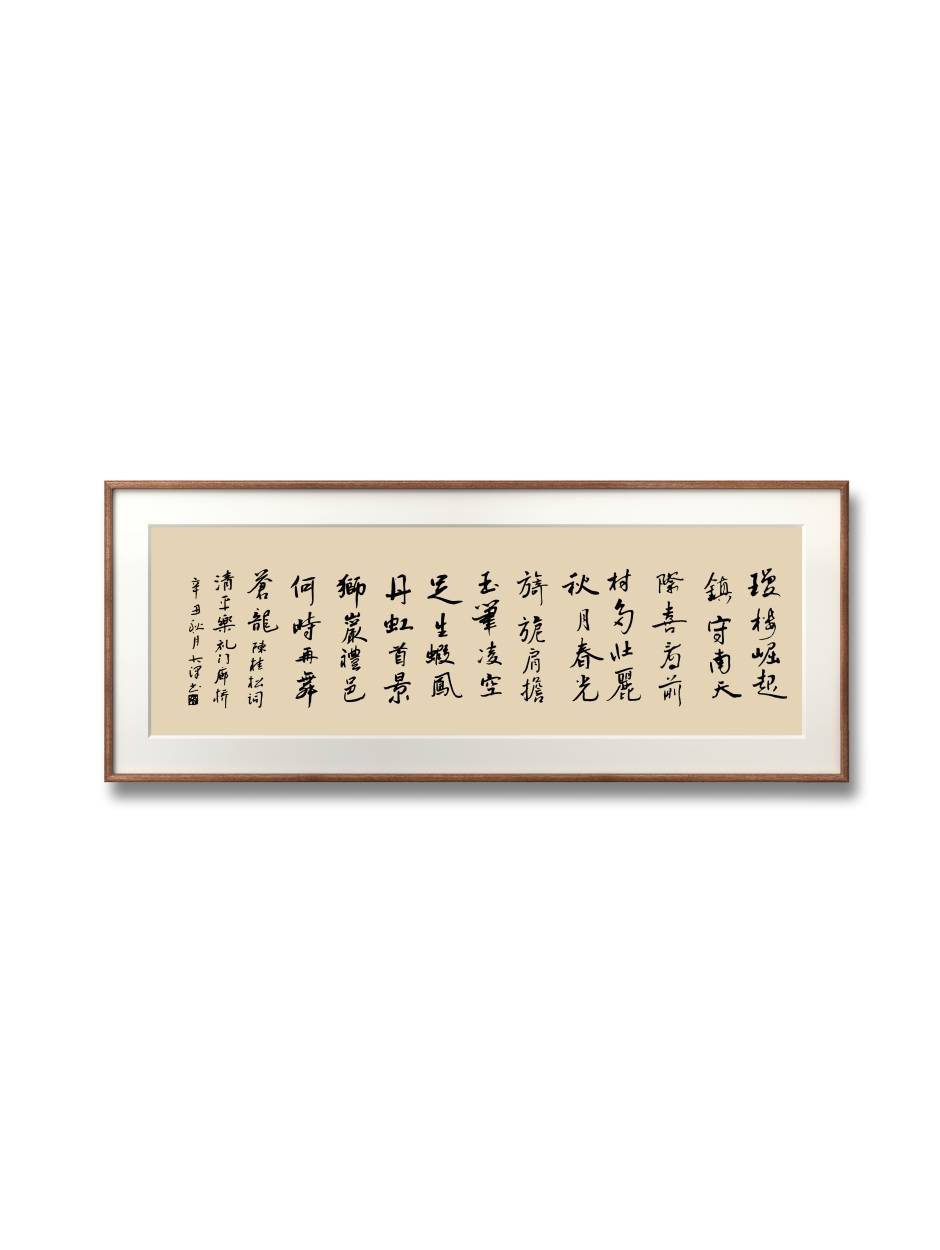 瓊樓崛起
鎮守南天
際喜看前
村多壯麗
秋月春光
旖旎肩擔
玉筆凌空
足生蝦鳳
丹虹首景
獅巖禮邑
何時再舞
蒼龍陳桂松詞
清平樂礼门廊桥
辛丑秋月大洋书